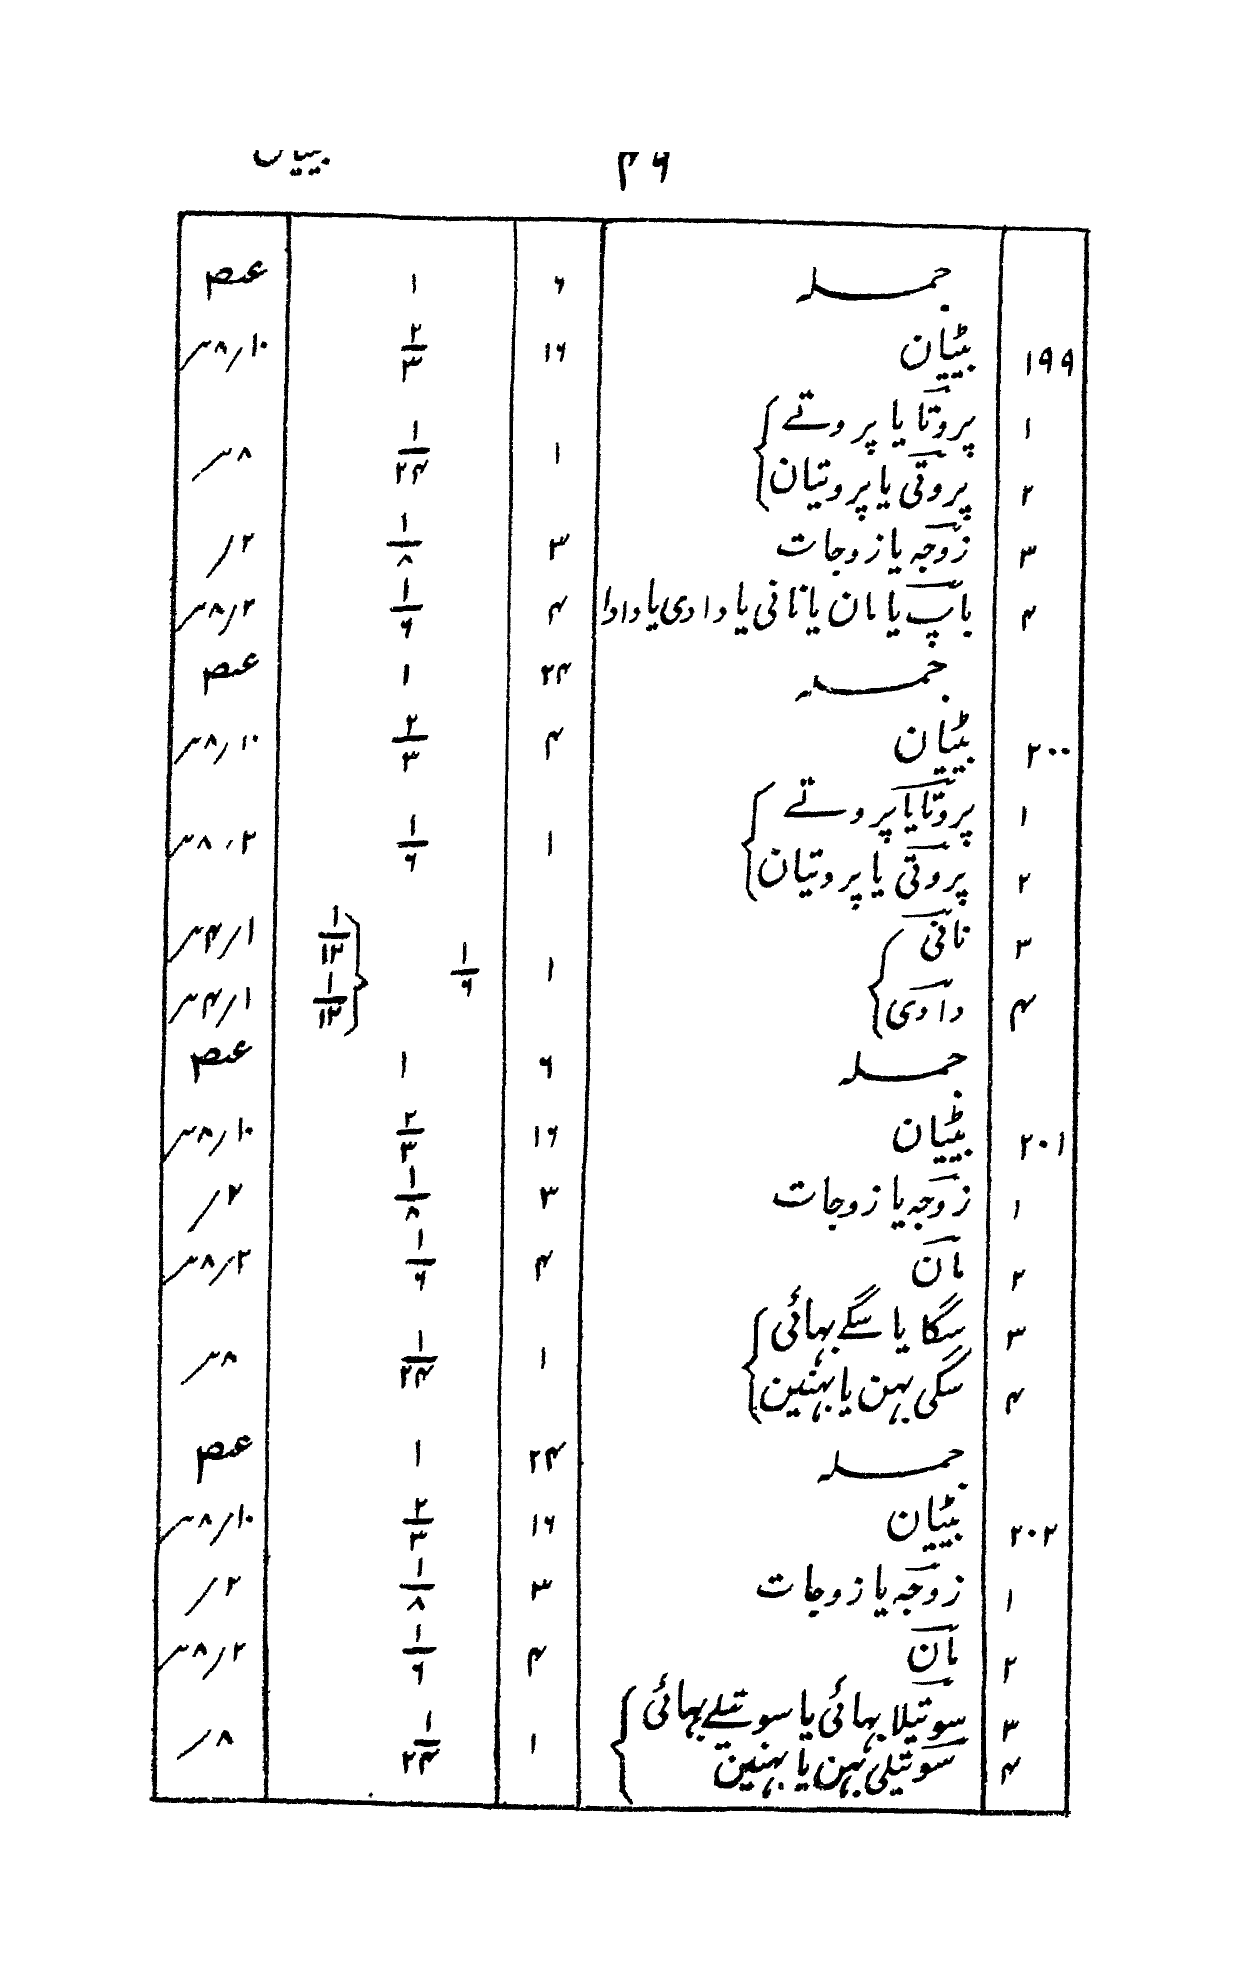 ۴۶ بیٹیان
جملہ ۶ ۱ عصہ
۱۹۹ بیٹیان ۱۶ ۲/۳ ۱۰/۸؍
۱ پروتا یا پروتے
۱ ۱/۲۴ ۸؍
۲ پروتی یا پروتیان
۳ زوجہ یا زوجات ۳ ۱/۸ ۲/
۴ باپ یا مان یا نانی یا دادی یا دادا ۴ ۱/۶ ۲/۸؍
جملہ ۲۴ ۱ عصہ
۲۰۰ بیٹیان ۴ ۲/۳ ۱۰/۸؍
۱ پروتا یا پروتے
۱ ۱/۶ ۲/۸؍
۲ پروتی یا پروتیان
۳ نانی ۱/۱۲ ۱/۴؍
۱ ۱/۶
۴ دادی ۱/۱۲ ۱/۴؍
جملہ ۶ ۱ عصہ
۲۰۱ بیٹیان ۱۶ ۲/۳ ۱۰/۸؍
۱ زوجہ یا زوجات ۳ ۱/۸ ۲/
۲ مان ۴ ۱/۶ ۲/۸؍
۳ سگا یا سگے بہائی
۱ ۱/۲۴ ۸؍
۴ سگی بہن یا بہنین
جملہ ۲۴ ۱ عصہ
۲۰۲ بیٹیان ۱۶ ۲/۳ ۱۰/۸؍
۱ زوجہ یا زوجات ۳ ۱/۸ ۲/
۲ مان ۴ ۱/۶ ۲/۸؍
۳ سوتیلا بہائی یا سوتیلے بہائی
۱ ۱/۲۴ ۸؍
۴ سوتیلی بہن یا بہنین